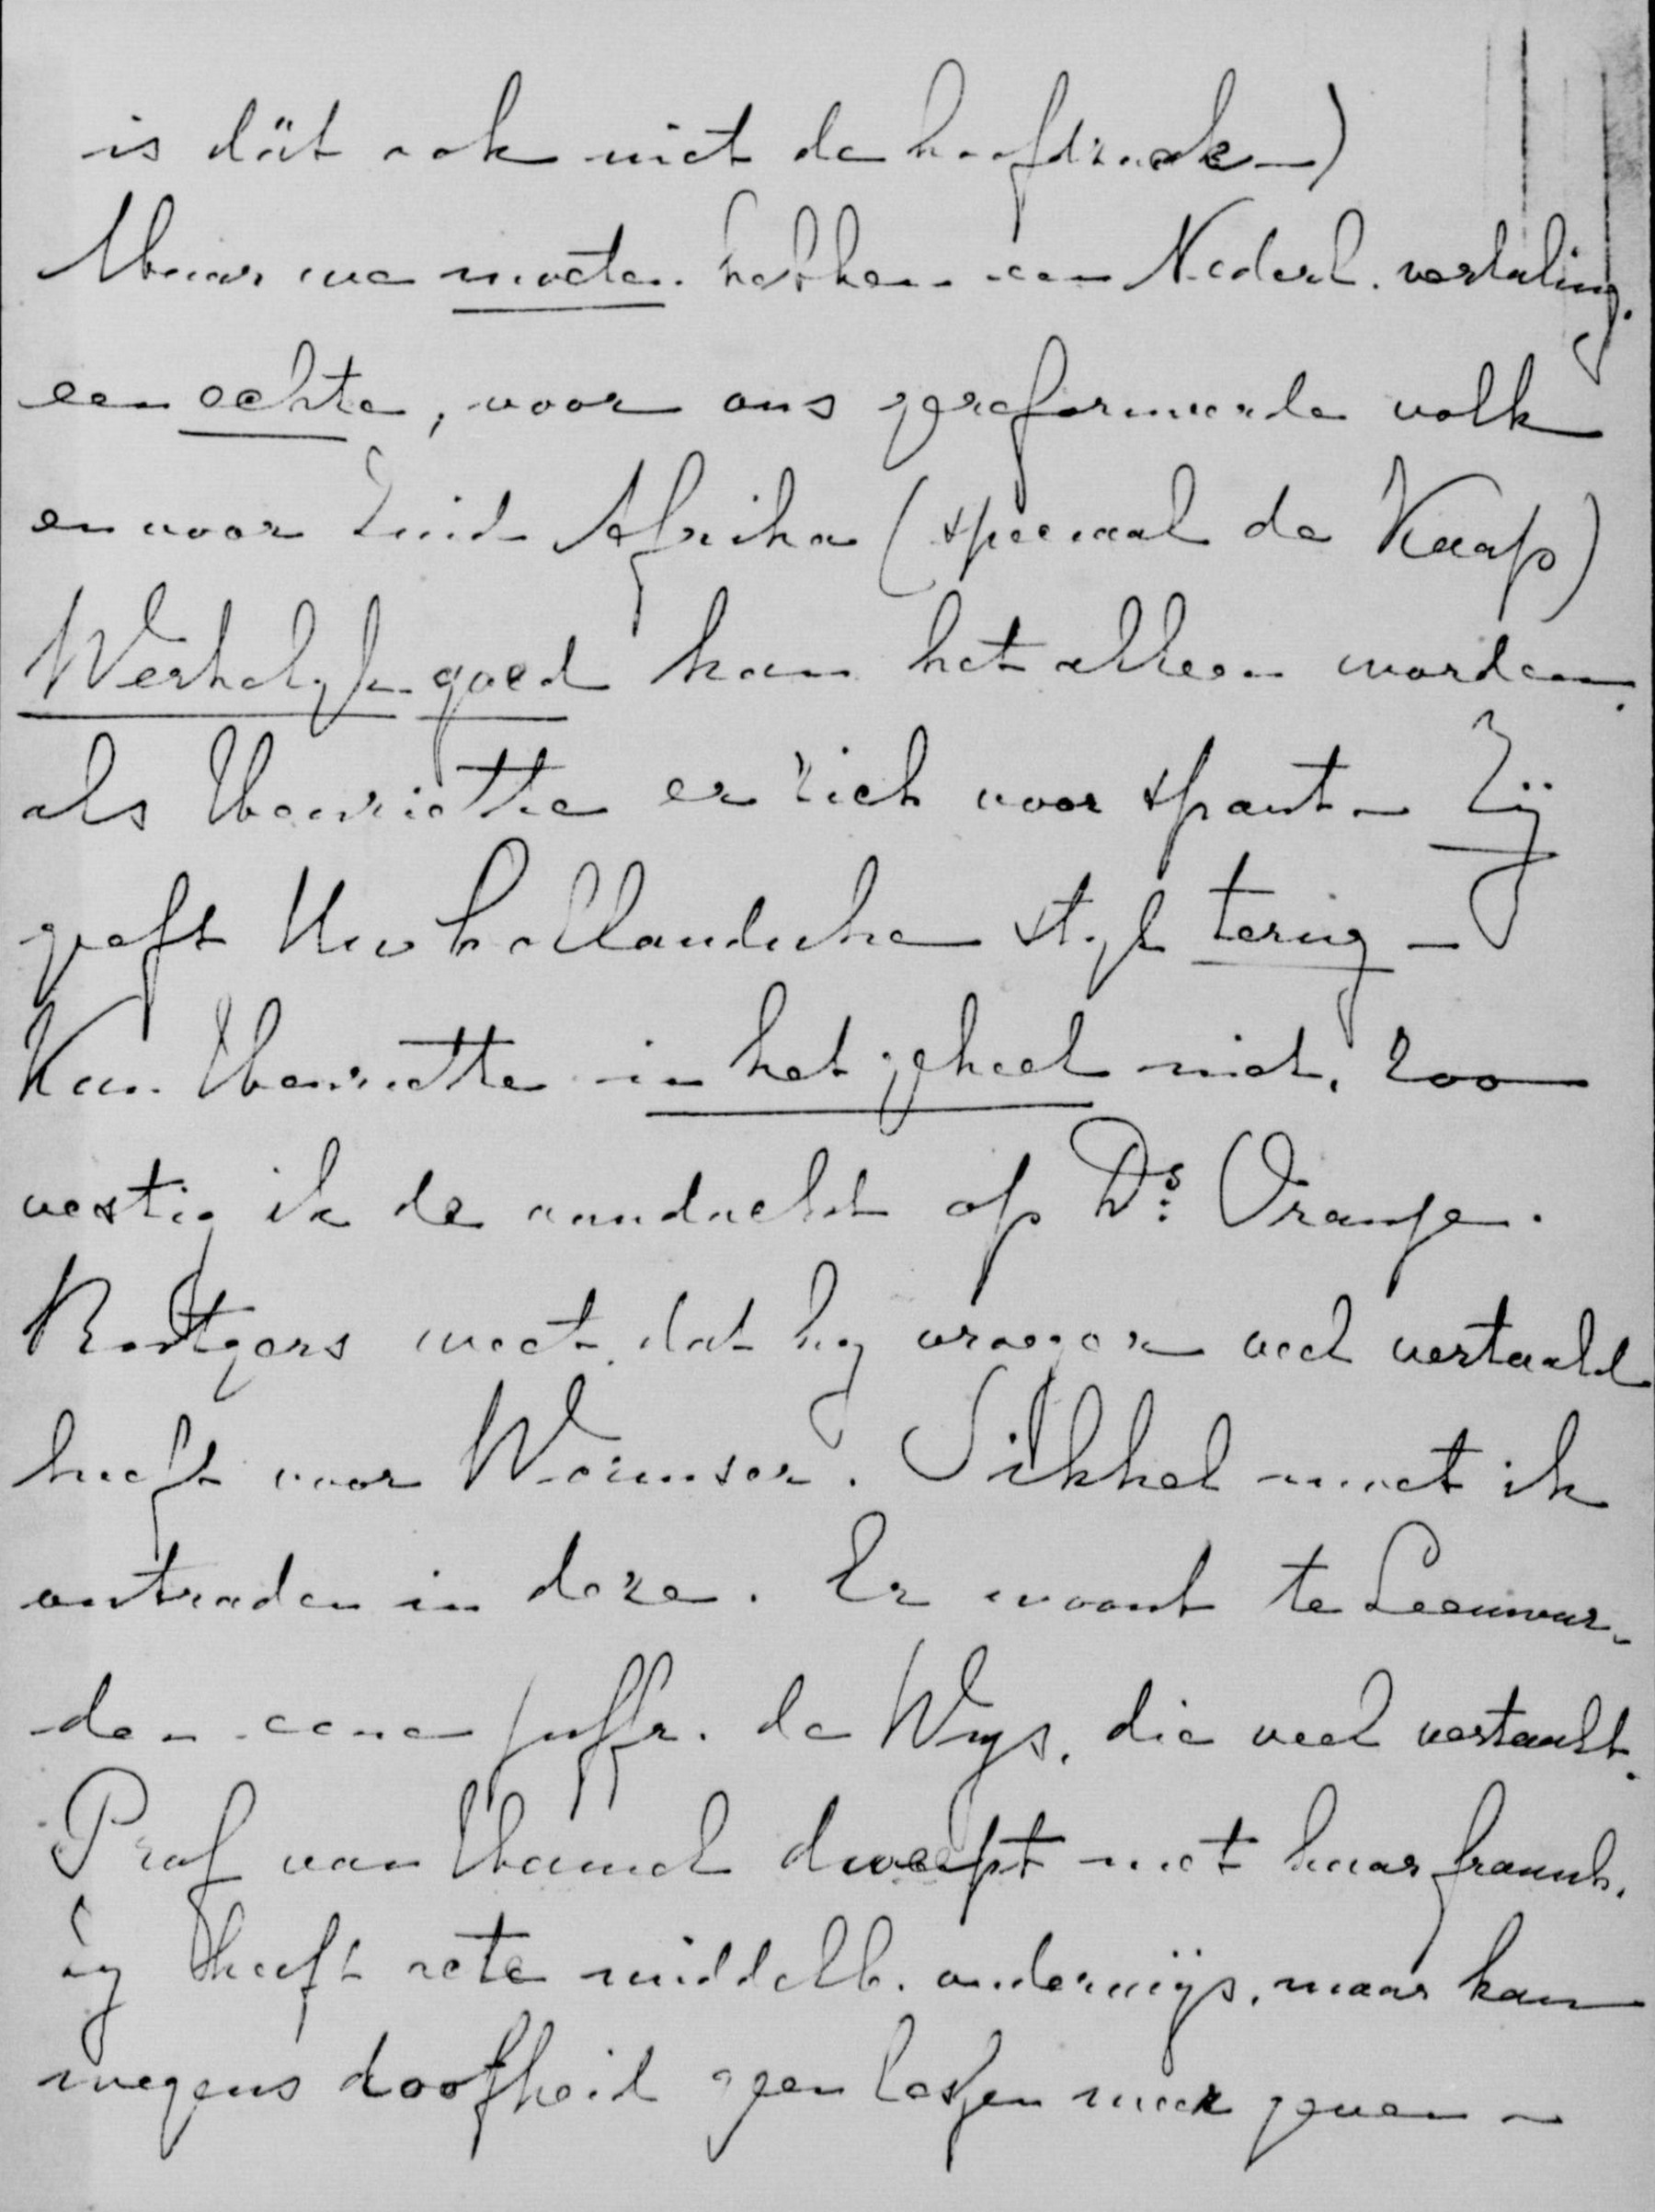 is dát ook niet de hoofdzaak –)
Maar we moeten hebben een Nederl. vertaling.
een echte, voor ons gereformeerde volk
en voor Zuid Afrika (speciaal de Kaap)
Werkelyk goed kan het alleen worden.
als Henriette er zich voor spant – Zij
geeft Uw hollandsche styl terug –
Kan Henriette in het geheel niet, zoo
vestig ik de aandacht op Ds. Oranje.
Rutgers weet, dat hy vroeger veel vertaald
heeft voor Wormser. Sikkel moet ik
ontraden in deze. Er woont te Leeuwar-
den eene juffr. de Wys, die veel vertaalt.
Prof van Hamel dweept met haar fransch.
Zy heeft acte middelb. onderwijs, maar kan
wegens doofheid geen lessen meer geven –